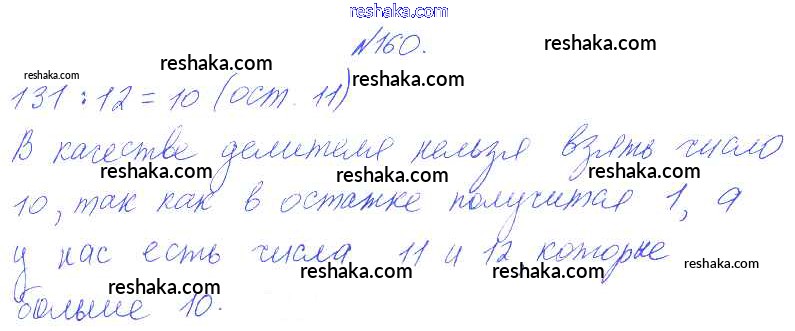 reshaka.com
№160.
reshaka.com reshaka.com
reshaka.com reshaka.com
131 : 12 = 10 (ост. 11)
reshaka.com reshaka.com
В качестве делителя нельзя взять число
reshaka.com reshaka.com
10, так как в остатке получится 1, а
reshaka.com reshaka.com
у нас есть числа 11 и 12 которые
reshaka.com reshaka.com reshaka.com
больше 10.
reshaka.com